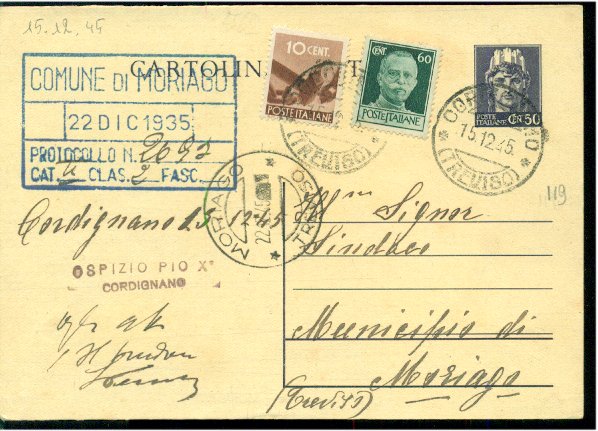 15.12.45
CARTOLIN
COMUNE DI MORIAGO
22 DIC 1935
PROTOCOLLO N. 2692
CAT. CLAS. 2 FASC.
10 CENT.
POSTE ITALIANE
CENT. 60
POSTE ITALIANE
POSTE ITALIANE CENT. 50
(TREVISO)
CORDIGNANO
15.12.45.
(TREVISO)
MORIAGO
TREVISO
119
Cordignano 15 12 45
OSPIZIO PIO X°
CORDIGNANO
Ill.mo Signor
Sindaco
Municipio di
Moriago
(Treviso)